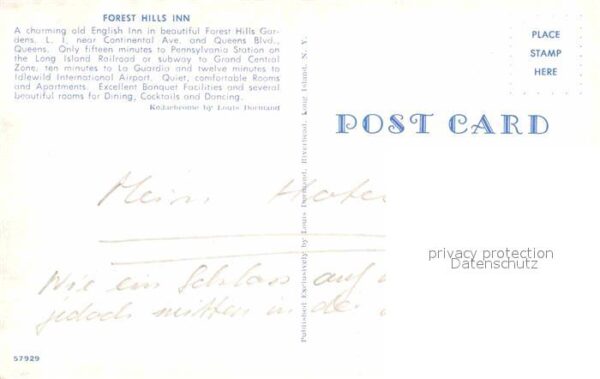 FOREST HILLS INN
A charming old English Inn in beautiful Forest Hills Gar-
dens, L. I., near Continental Ave. and Queens Blvd.,
Queens. Only fifteen minutes to Pennsylvania Station on
the Long Island Railroad or subway to Grand Central
Zone, ten minutes to La Guardia and twelve minutes to
Idlewild International Airport. Quiet, comfortable Rooms
and Apartments. Excellent Banquet Facilities and several
beautiful rooms for Dining, Cocktails and Dancing.
Kodachrome by Louis Dormand
Mein
Wie ein Schloss auf
jedoch mitten in der
57929
Published Exclusively by Louis Dormand, Riverhead, Long Island, N. Y.
PLACE
STAMP
HERE
POST CARD
privacy protection
Datenschutz